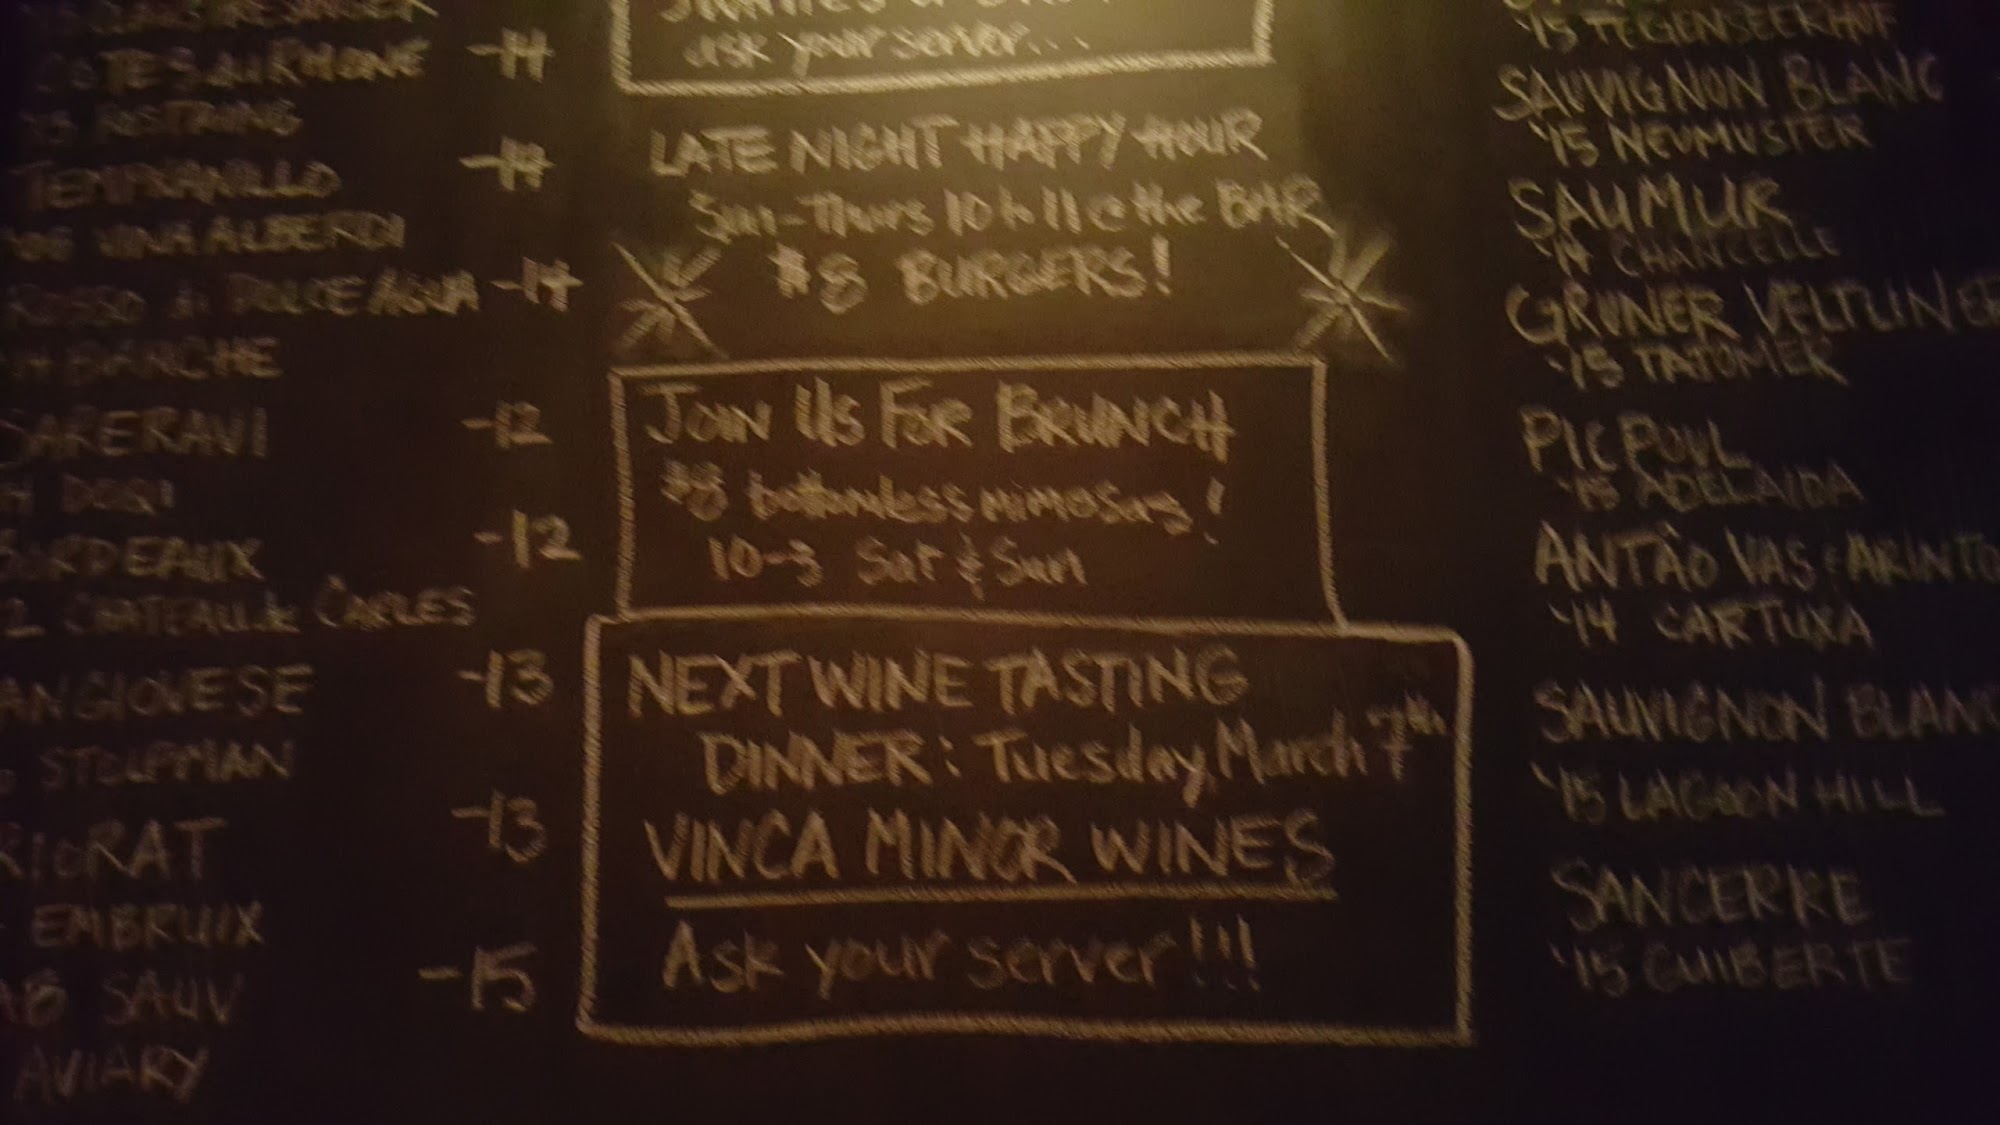 COTES du RHONE -14
TEMPRANILLO -14
'06 VINA ALBERDI
ROSSO di DOLCE AGUA -14
SAPERAVI -12
DORI
BORDEAUX -12
CHATEAU de CARLES
ANGIOVESE -13
STOLPMAN
RIORAT -13
EMBRUIX
AB SAUV -15
AVIARY
ask your server...
LATE NIGHT HAPPY HOUR
Sun-Thurs 10 to 11 @ the BAR
$8 BURGERS!
JOIN US FOR BRUNCH
$8 bottomless mimosas!
10-3 Sat & Sun
NEXT WINE TASTING
DINNER: Tuesday, March 7th
VINCA MINOR WINES
Ask your server!!!
'15 TEGENSEERHOF
SAUVIGNON BLANC
'15 NEUMUSTER
SAUMUR
'14 CHANCELLE
GRUNER VELTLINER
'15 TATOMER
PICPOUL
'15 ADELAIDA
ANTÃO VAS & ARINTO
'14 CARTUXA
SAUVIGNON BLANC
'15 LAGOON HILL
SANCERRE
'15 GUIBERTE